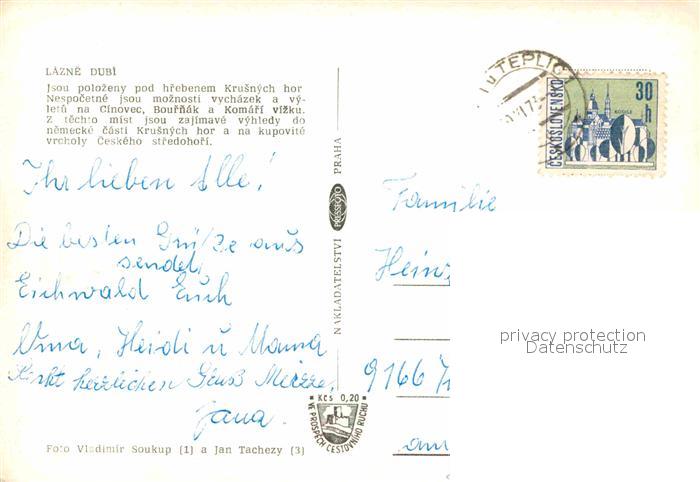 LÁZNĚ DUBÍ
Jsou položeny pod hřebenem Krušných hor
Nespočetné jsou možnosti vycházek a vý-
letů na Cínovec, Bouřňák a Komáří vížku.
Z těchto míst jsou zajímavé výhledy do
německé části Krušných hor a na kupovité
vrcholy Českého středohoří.
Ihr lieben Alle!
Die besten Grüße aus
sendet
Eichwald Euch
Oma, Heidi u Mama
herzlichen Gruß
Jana.
Foto Vladimír Soukup (1) a Jan Tachezy (3)
NAKLADATELSTVÍ PRESSFOTO PRAHA
Kčs 0,20
VE PROSPĚCH CESTOVNÍHO RUCHU
U TEPLIC
ČESKOSLOVENSKO
30
h
Familie
Hein
9166
am
privacy protection
Datenschutz